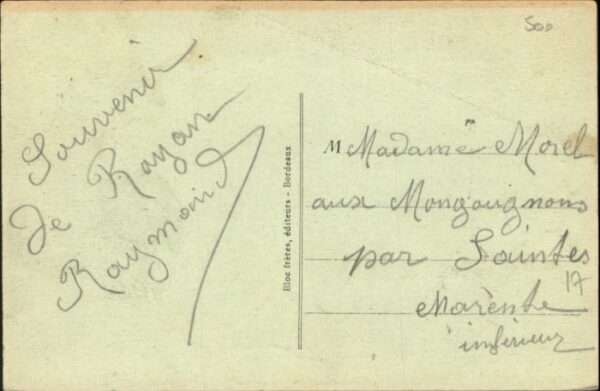 500
Souvenir
de Royan
Raymond
Bloc frères, éditeurs - Bordeaux
M Madame Morel
aux Mongougnons
par Saintes
17
Charente
inférieur